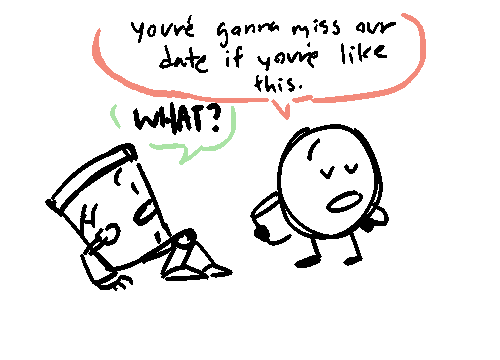 you're gonna miss our
date if you're like
this.
WHAT?